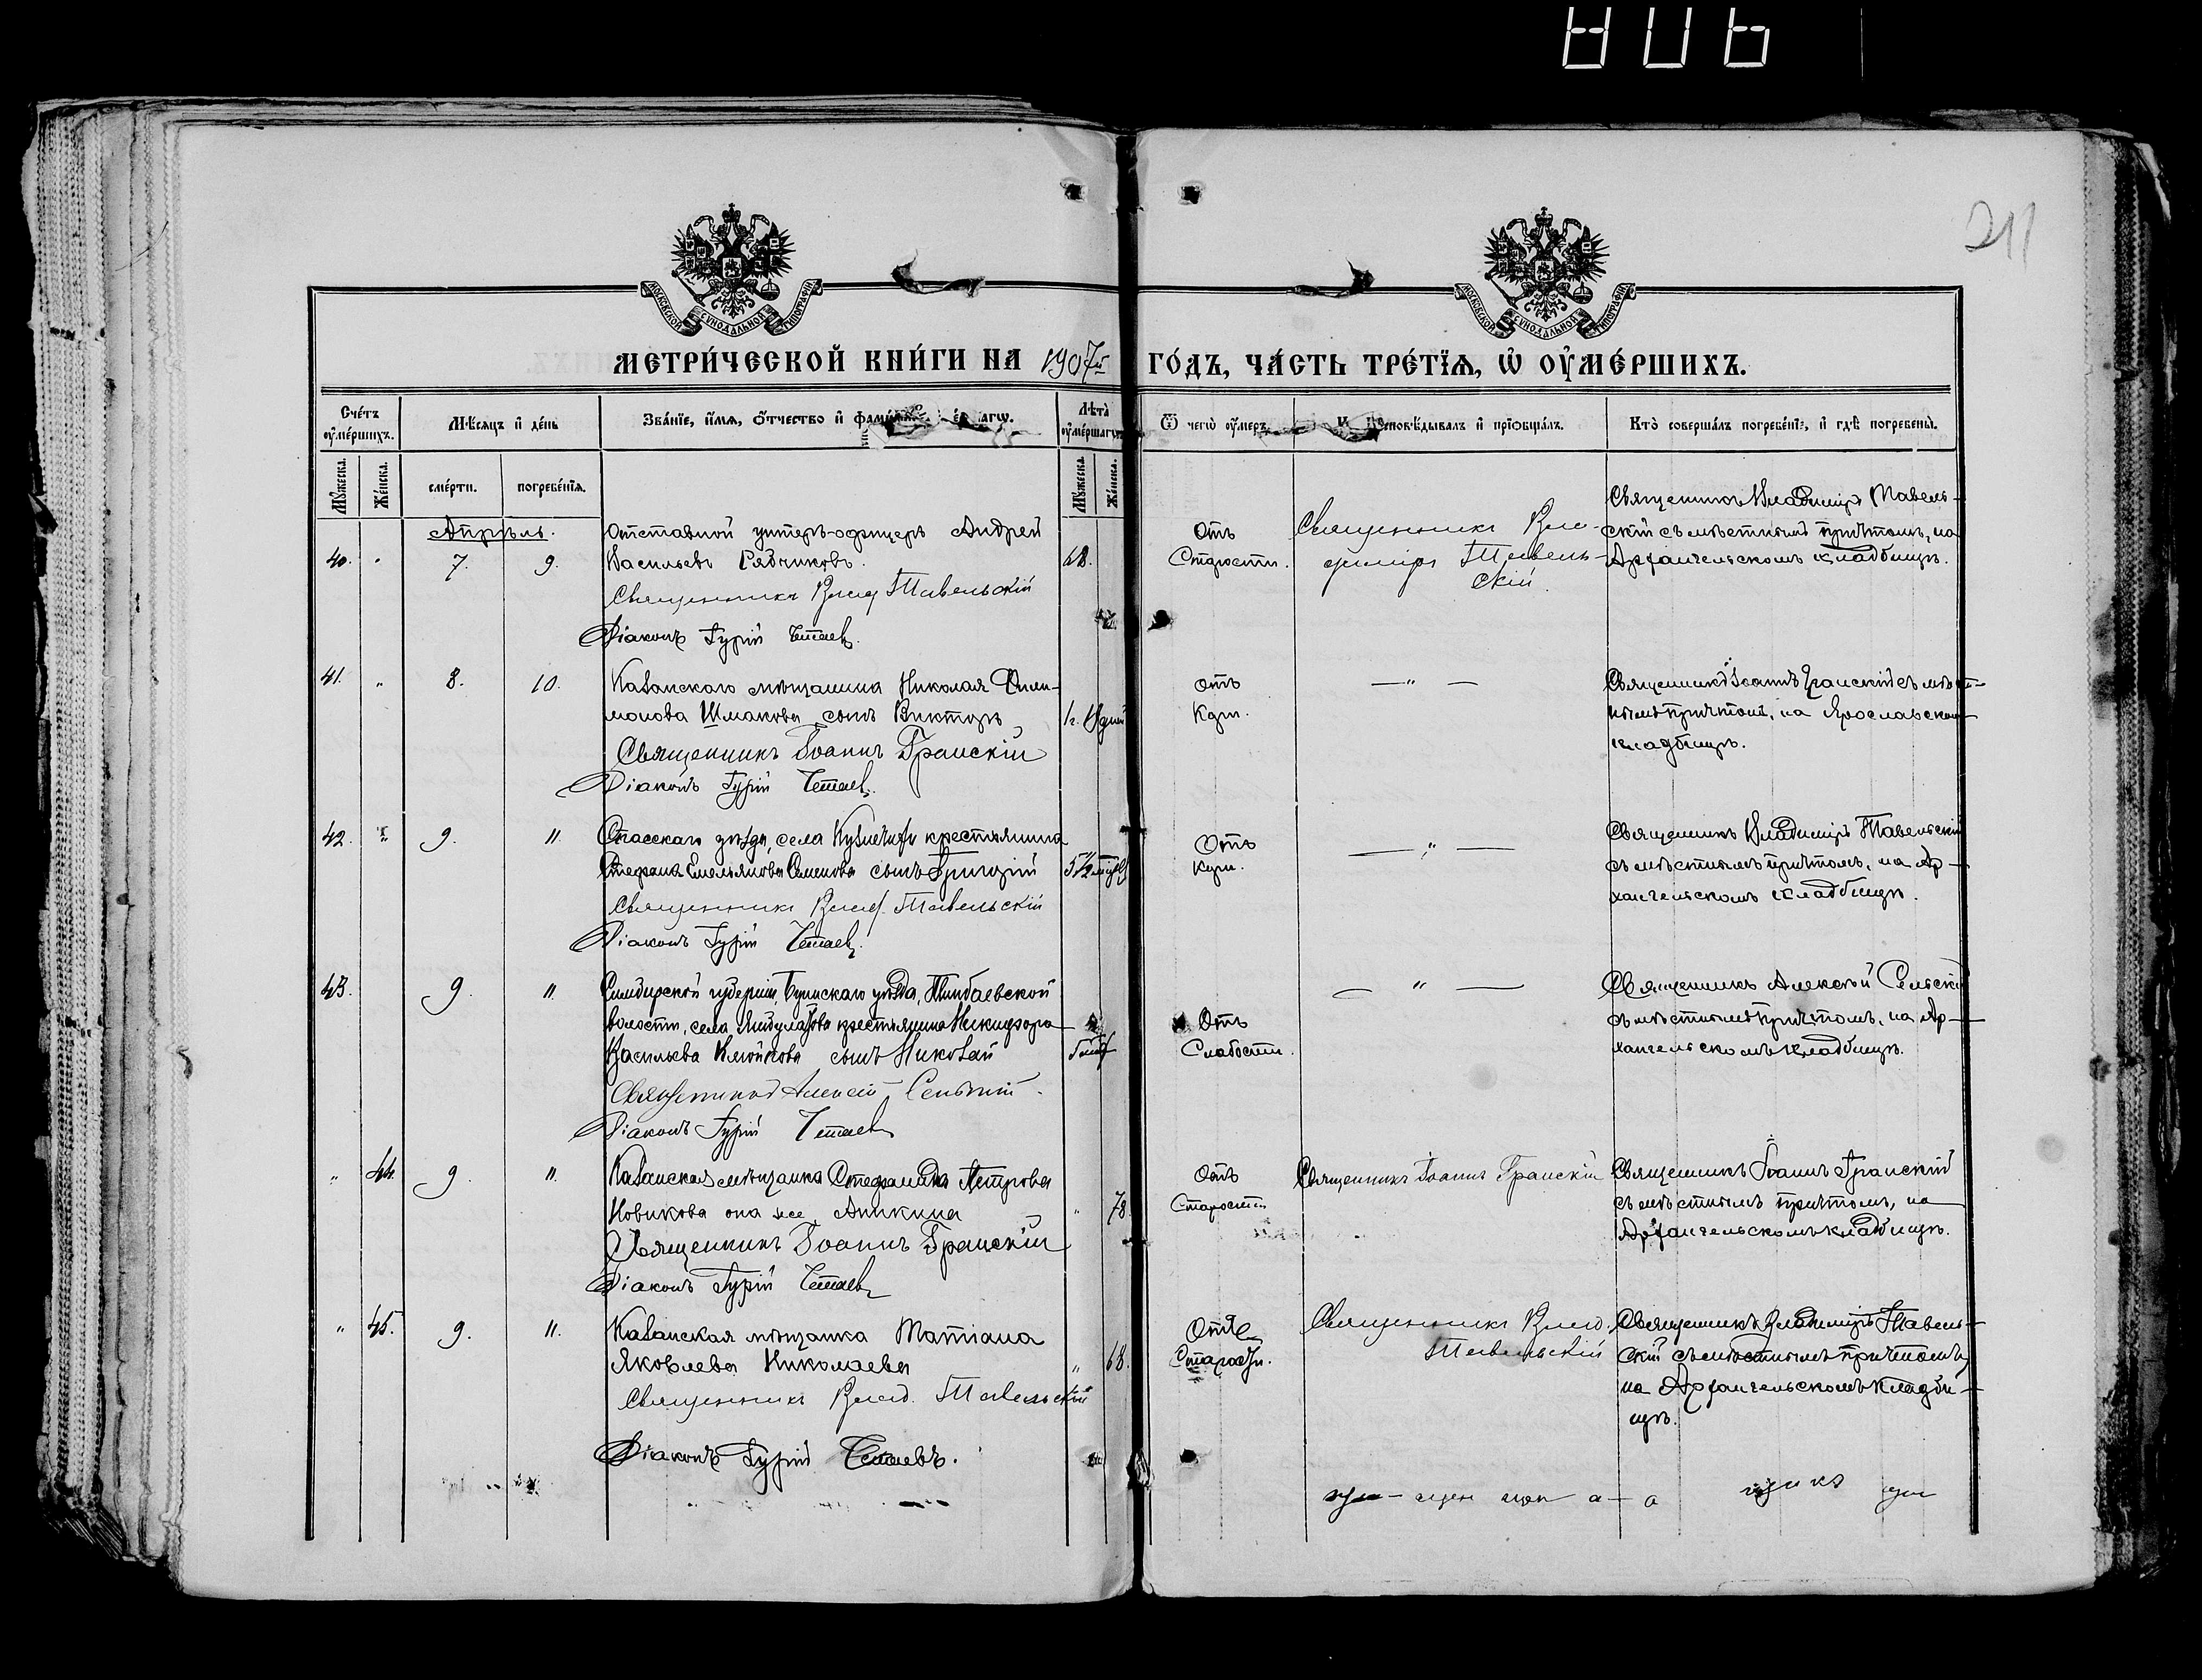 906
211
МОСКОВСКОЙ СѴНОДАЛЬНОЙ ТИПОГРАФІИ
МОСКОВСКОЙ СѴНОДАЛЬНОЙ ТИПОГРАФІИ
МЕТРИ́ЧЕСКОЙ КНИ́ГИ НА 1907й ГО́ДЪ, ЧА́СТЬ ТРЕ́ТЇѦ, Ѡ ОУ҆МЕ́РШИХЪ.
Счетъ оумершихъ.
Мѣсяцъ и день
Званіе, имя, отчество и
Лѣта оумершагѡ
Ѿ чегѡ оумеръ
исповѣдывалъ и пріобщалъ.
Кто совершалъ погребеніе, и гдѣ погребены.
Мужеска.
Женска.
смерти.
погребенія.
Мужеска.
Женска.
Апрѣль.
40. " 7. 9.
Отставной унтеръ-офицеръ Андрей
Васильевъ Рябчиковъ.
Священникъ Влад Тавельскій
Діаконъ Гурій Четаевъ.
68.
Отъ
Старости.
Священникъ Вла-
димiръ Тавель-
скій
Священникъ Владиміръ Тавель-
скій съ мѣстнымъ причтомъ, на
Архангельскомъ кладбищѣ.
41. " 8. 10.
Казанскаго мѣщанина Николая Фили-
монова Шмакова сынъ Викторъ
Священникъ Іоаннъ Гранскій
Діаконъ Гурій Четаевъ.
Отъ
Кори.
— " —
Священникъ Іоаннъ Гранскій съ мѣст-
нымъ причтомъ, на Ярославском
кладбищѣ.
42. " 9. 11.
Спасскаго уѣзда, села крестьянина
Стефана Емельянова Семенова сынъ Григорій
Священникъ Влад. Тавельскій
Діаконъ Гурій Четаевъ.
5½
Отъ
Кори.
— " —
Священникъ Владиміръ Тавельскій
съ мѣстнымъ причтомъ, на Ар-
хангельскомъ кладбищѣ.
43. 9. 11.
Симбирской губерніи, Буинскаго уѣзда,
волости, села крестьянина Никифора
Васильева сынъ Николай
Священникъ Алексій
Діаконъ Гурій Четаевъ
Отъ
Слабости.
— " —
Священникъ Алексій
съ мѣстнымъ причтомъ, на Ар-
хангельскомъ кладбищѣ.
" 44. 9. 11.
Казанская мѣщанка Стефанида Петрова
Новикова она же Аникина
Священникъ Іоаннъ Гранскій
Діаконъ Гурій Четаевъ
" 78.
Отъ
Старости
Священникъ Іоаннъ Гранскій
Священникъ Іоаннъ Гранскій
съ мѣстнымъ причтомъ, на
Архангельскомъ кладбищѣ.
" 45. 9. 11.
Казанская мѣщанка Татіана
Яковлева Николаева
Священникъ Влад. Тавельскій
Діаконъ Гурій Четаевъ.
" 68.
Отъ
Старости.
Священникъ Влад.
Тавельскій
Священникъ Владиміръ Тавель-
скій съ мѣстнымъ причтомъ,
на Архангельскомъ кладби-
щѣ.